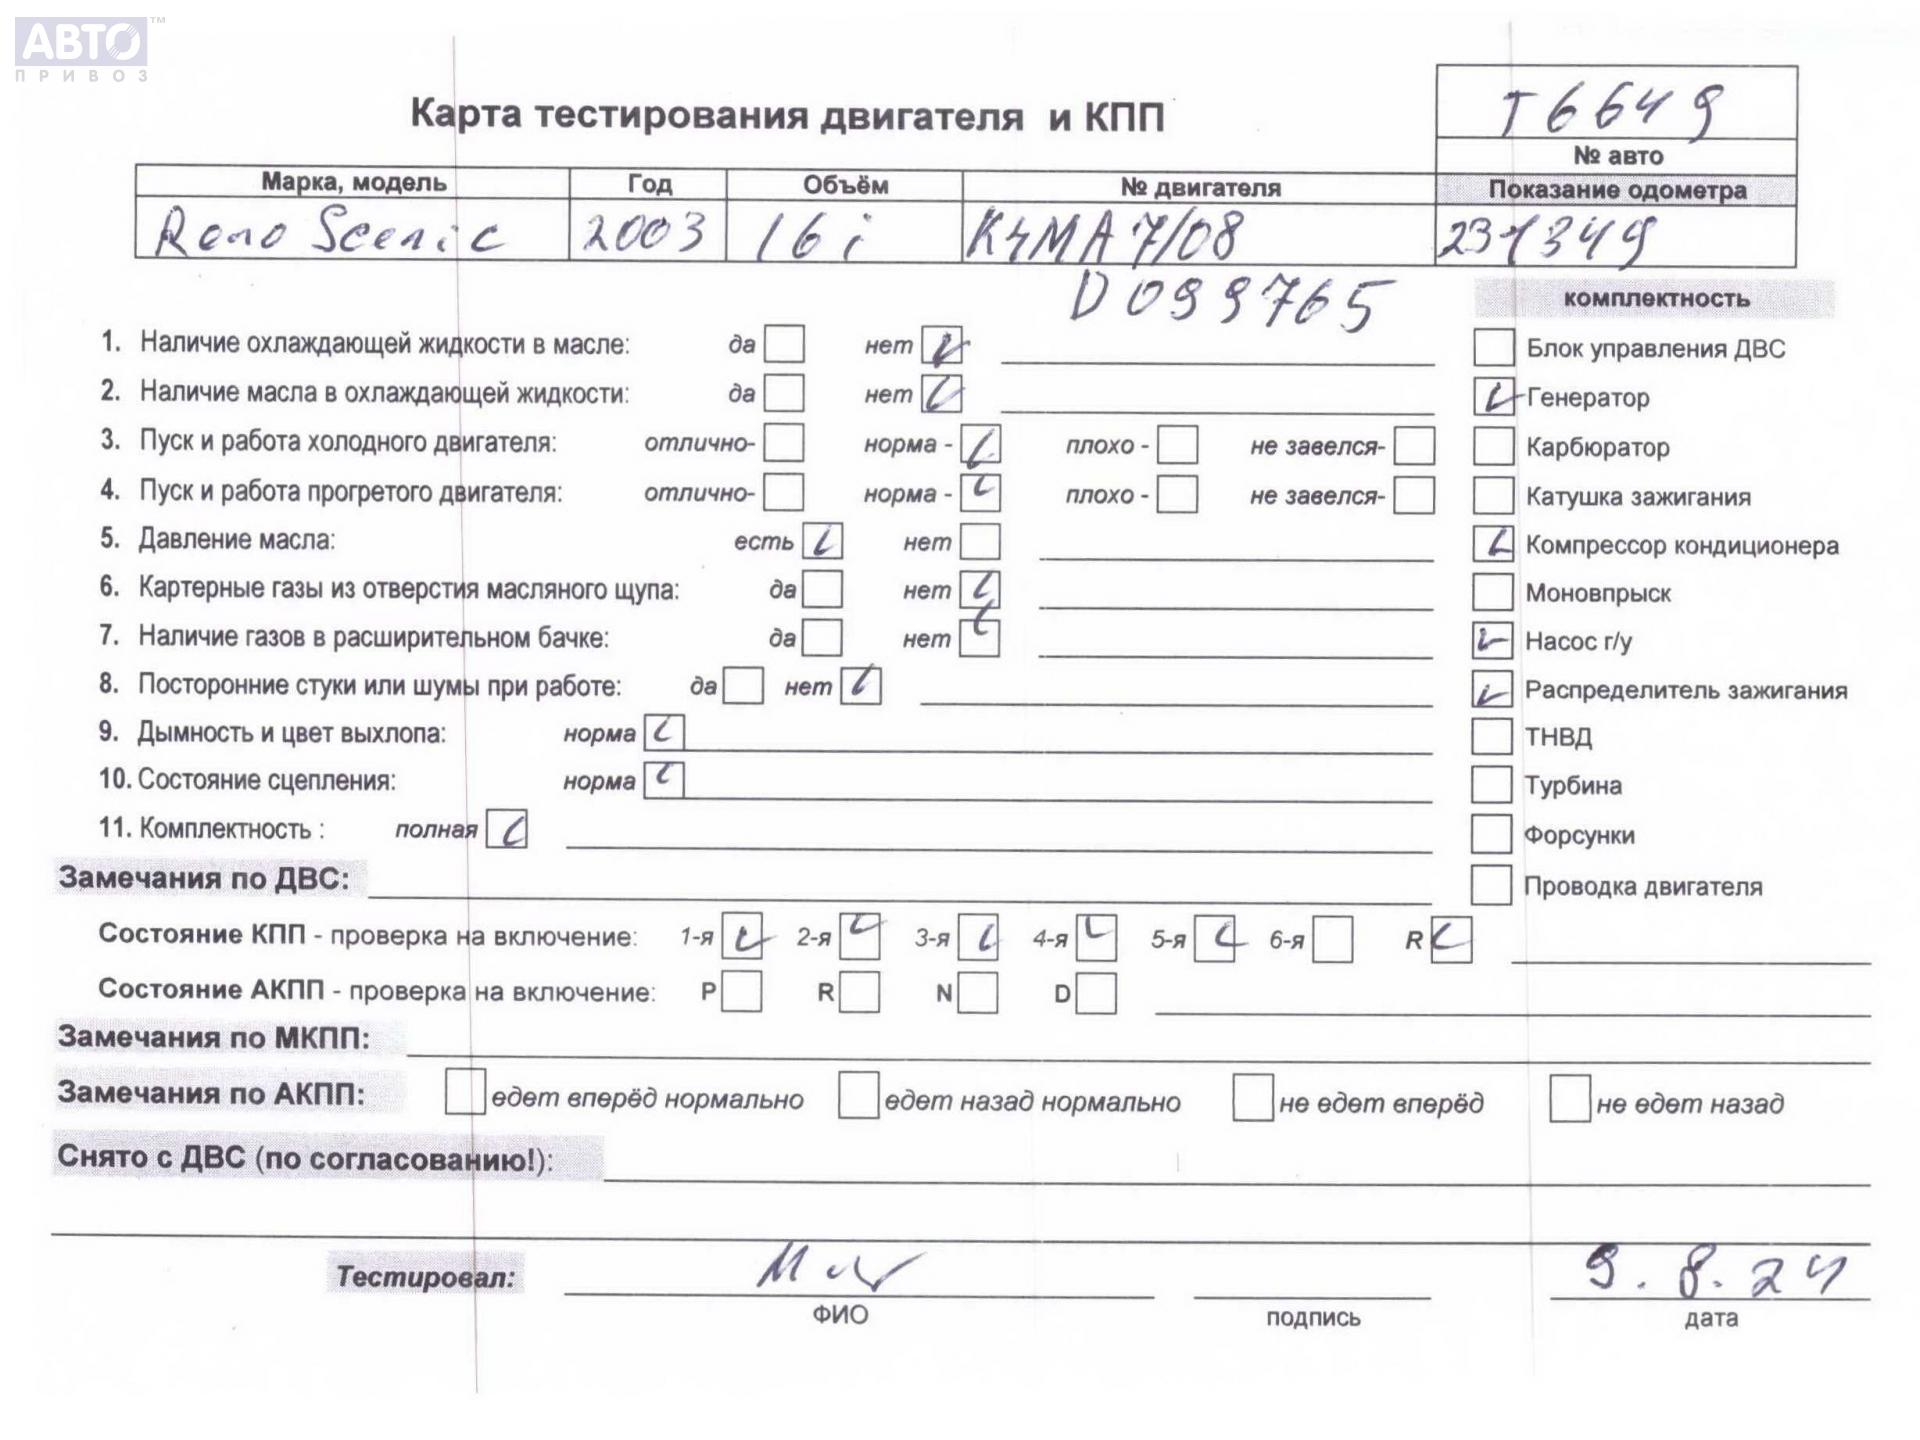 АВТО™
ПРИВОЗ
Карта тестирования двигателя и КПП
Т6649
№ авто
Марка, модель Год Объём № двигателя Показание одометра
Reno Scenic 2003 16i K4MA7/08 231349
D099765
комплектность
1. Наличие охлаждающей жидкости в масле: да нет Блок управления ДВС
2. Наличие масла в охлаждающей жидкости: да нет Генератор
3. Пуск и работа холодного двигателя: отлично- норма - плохо - не завелся- Карбюратор
4. Пуск и работа прогретого двигателя: отлично- норма - плохо - не завелся- Катушка зажигания
5. Давление масла: есть нет Компрессор кондиционера
6. Картерные газы из отверстия масляного щупа: да нет Моновпрыск
7. Наличие газов в расширительном бачке: да нет Насос г/у
8. Посторонние стуки или шумы при работе: да нет Распределитель зажигания
9. Дымность и цвет выхлопа: норма ТНВД
10. Состояние сцепления: норма Турбина
11. Комплектность : полная Форсунки
Замечания по ДВС: Проводка двигателя
Состояние КПП - проверка на включение: 1-я 2-я 3-я 4-я 5-я 6-я R
Состояние АКПП - проверка на включение: P R N D
Замечания по МКПП:
Замечания по АКПП: едет вперёд нормально едет назад нормально не едет вперёд не едет назад
Снято с ДВС (по согласованию!):
Тестировал: 9.8.24
ФИО подпись дата